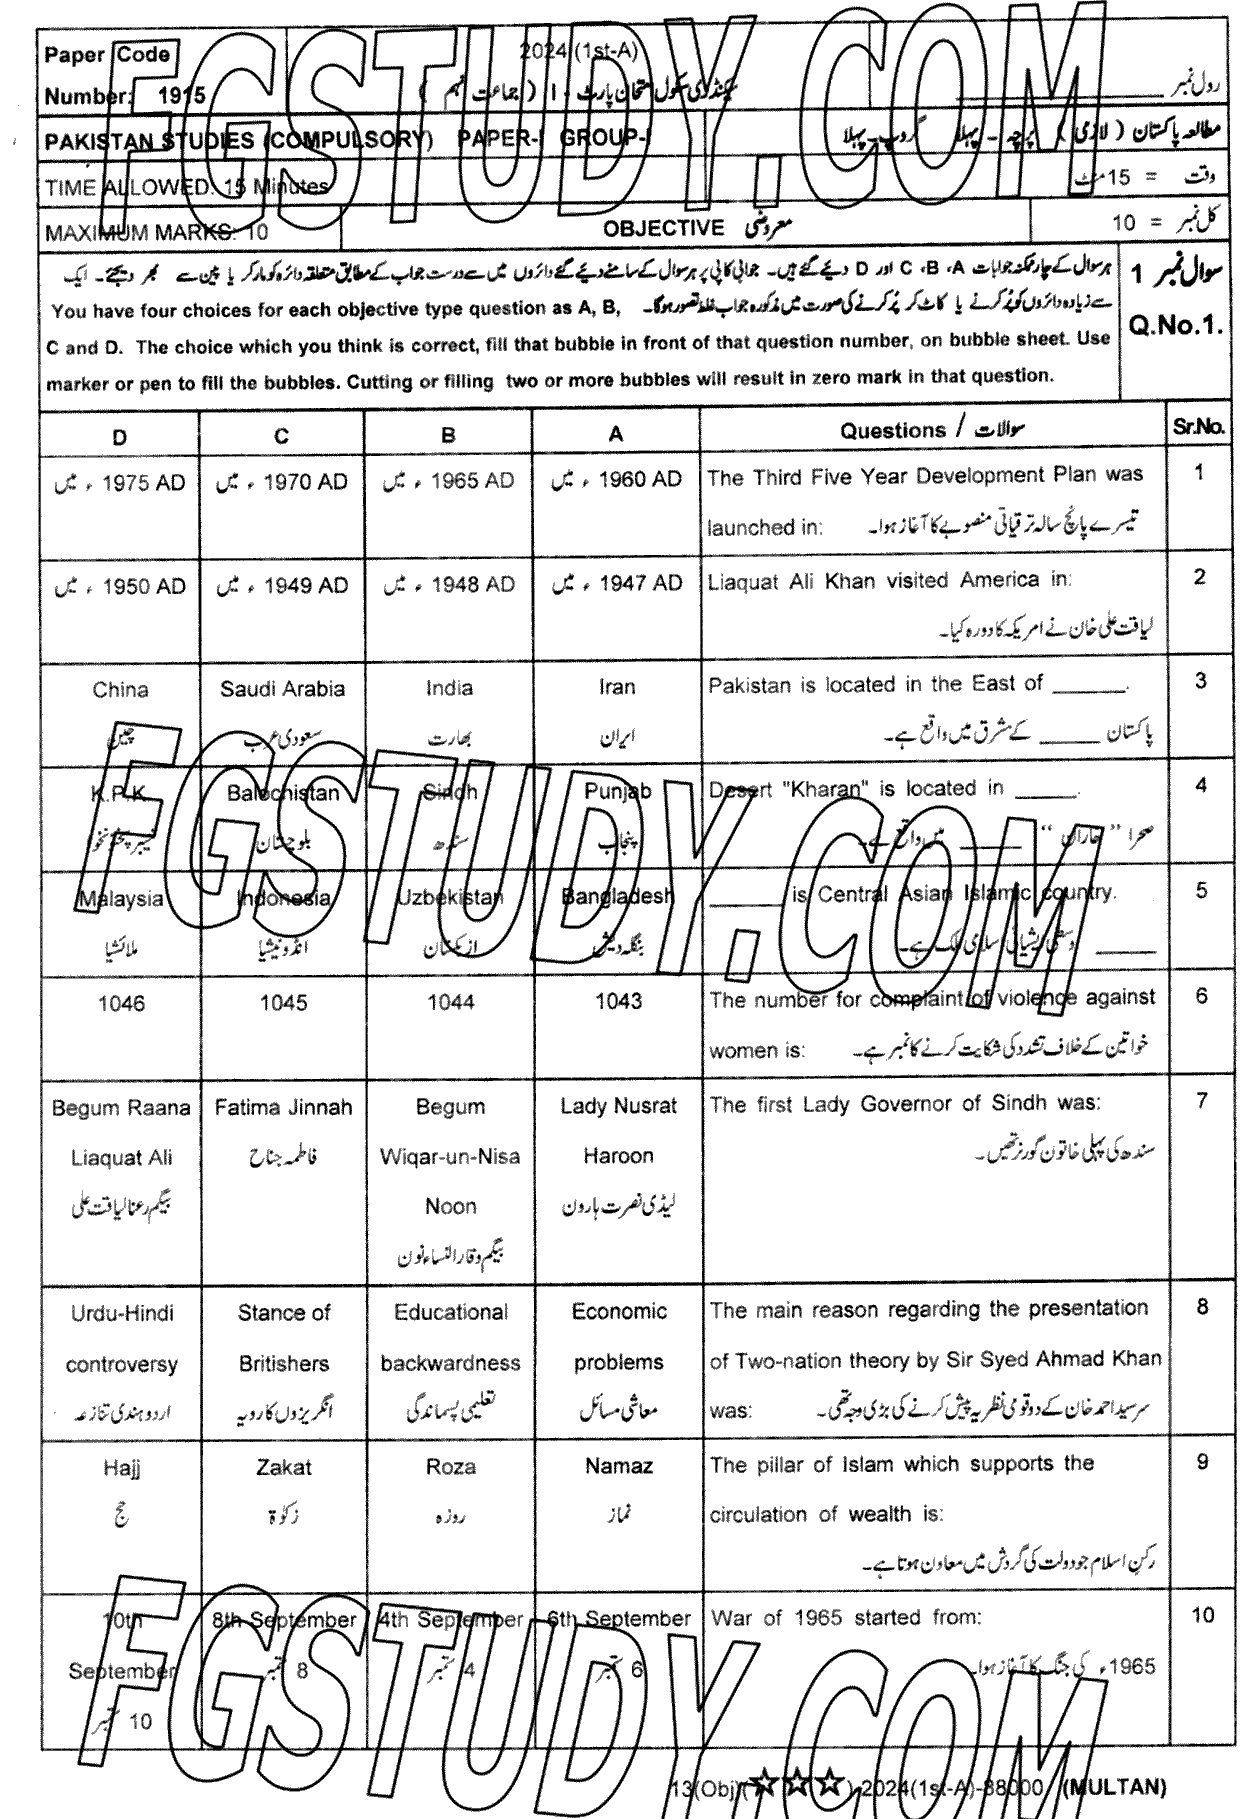 Paper Code
Number: 1915
2024 (1st-A)
سیکنڈری سکول امتحان پارٹ - I ( جماعت نہم )
رول نمبر
PAKISTAN STUDIES (COMPULSORY) PAPER-I GROUP-I
مطالعہ پاکستان ( لازمی ) پرچہ - پہلا گروپ - پہلا
TIME ALLOWED: 15 Minutes
وقت = 15 منٹ
MAXIMUM MARKS: 10
OBJECTIVE معروضی
کل نمبر = 10
سوال نمبر 1
Q.No.1.
ہر سوال کے چار ممکنہ جوابات A، B، C اور D دیئے گئے ہیں۔ جوابی کاپی پر ہر سوال کے سامنے دیئے گئے دائروں میں سے درست جواب کے مطابق متعلقہ دائرہ کو مارکر یا پین سے بھر دیجئے۔ ایک
سے زیادہ دائروں کو پُر کرنے یا کاٹ کر پُر کرنے کی صورت میں مذکورہ جواب غلط تصور ہوگا۔ You have four choices for each objective type question as A, B,
C and D. The choice which you think is correct, fill that bubble in front of that question number, on bubble sheet. Use
marker or pen to fill the bubbles. Cutting or filling two or more bubbles will result in zero mark in that question.
D C B A Questions / سوالات Sr.No.
1975 AD ء میں 1970 AD ء میں 1965 AD ء میں 1960 AD ء میں The Third Five Year Development Plan was 1
launched in: تیسرے پانچ سالہ ترقیاتی منصوبے کا آغاز ہوا۔
1950 AD ء میں 1949 AD ء میں 1948 AD ء میں 1947 AD ء میں Liaquat Ali Khan visited America in: 2
لیاقت علی خان نے امریکہ کا دورہ کیا۔
China Saudi Arabia India Iran Pakistan is located in the East of ______. 3
چین سعودی عرب بھارت ایران پاکستان _____ کے مشرق میں واقع ہے۔
K.P.K Balochistan Sindh Punjab Desert "Kharan" is located in _____. 4
خیبر پختونخوا بلوچستان سندھ پنجاب صحرا "خاران" _____ میں واقع ہے۔
Malaysia Indonesia Uzbekistan Bangladesh ______ is Central Asian Islamic country. 5
ملائشیا انڈونیشیا ازبکستان بنگلہ دیش _____ وسطی ایشیائی اسلامی ملک ہے۔
1046 1045 1044 1043 The number for complaint of violence against 6
women is: خواتین کے خلاف تشدد کی شکایت کرنے کا نمبر ہے۔
Begum Raana Fatima Jinnah Begum Lady Nusrat The first Lady Governor of Sindh was: 7
Liaquat Ali فاطمہ جناح Wiqar-un-Nisa Haroon سندھ کی پہلی خاتون گورنر تھیں۔
بیگم رعنا لیاقت علی Noon لیڈی نصرت ہارون
بیگم وقار النساء نون
Urdu-Hindi Stance of Educational Economic The main reason regarding the presentation 8
controversy Britishers backwardness problems of Two-nation theory by Sir Syed Ahmad Khan
اردو ہندی تنازعہ انگریزوں کا رویہ تعلیمی پسماندگی معاشی مسائل was: سرسید احمد خان کے دو قومی نظریہ پیش کرنے کی بڑی وجہ تھی۔
Hajj Zakat Roza Namaz The pillar of Islam which supports the 9
حج زکوٰۃ روزہ نماز circulation of wealth is:
رکنِ اسلام جو دولت کی گردش میں معاون ہوتا ہے۔
10th 8th September 4th September 6th September War of 1965 started from: 10
September 8 ستمبر 4 ستمبر 6 ستمبر 1965ء کی جنگ کا آغاز ہوا۔
10 ستمبر
13(Obj)(☆☆☆)-2024(1st-A)-38000 (MULTAN)
FGSTUDY.COM
FGSTUDY.COM
FGSTUDY.COM